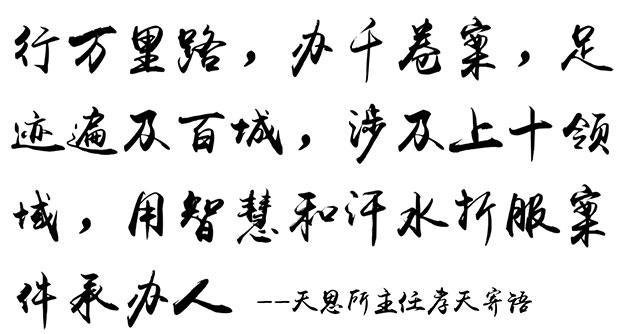 行万里路，办千卷案，足
迹遍及百城，涉及上十领
域，用智慧和汗水折服案
件承办人 --天恩所主任孝天寄语